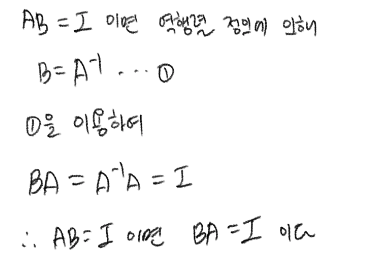 AB = I 이면 역행렬 정의에 의해
B = A⁻¹ ... ①
①을 이용하여
BA = A⁻¹A = I
∴ AB = I 이면 BA = I 이다